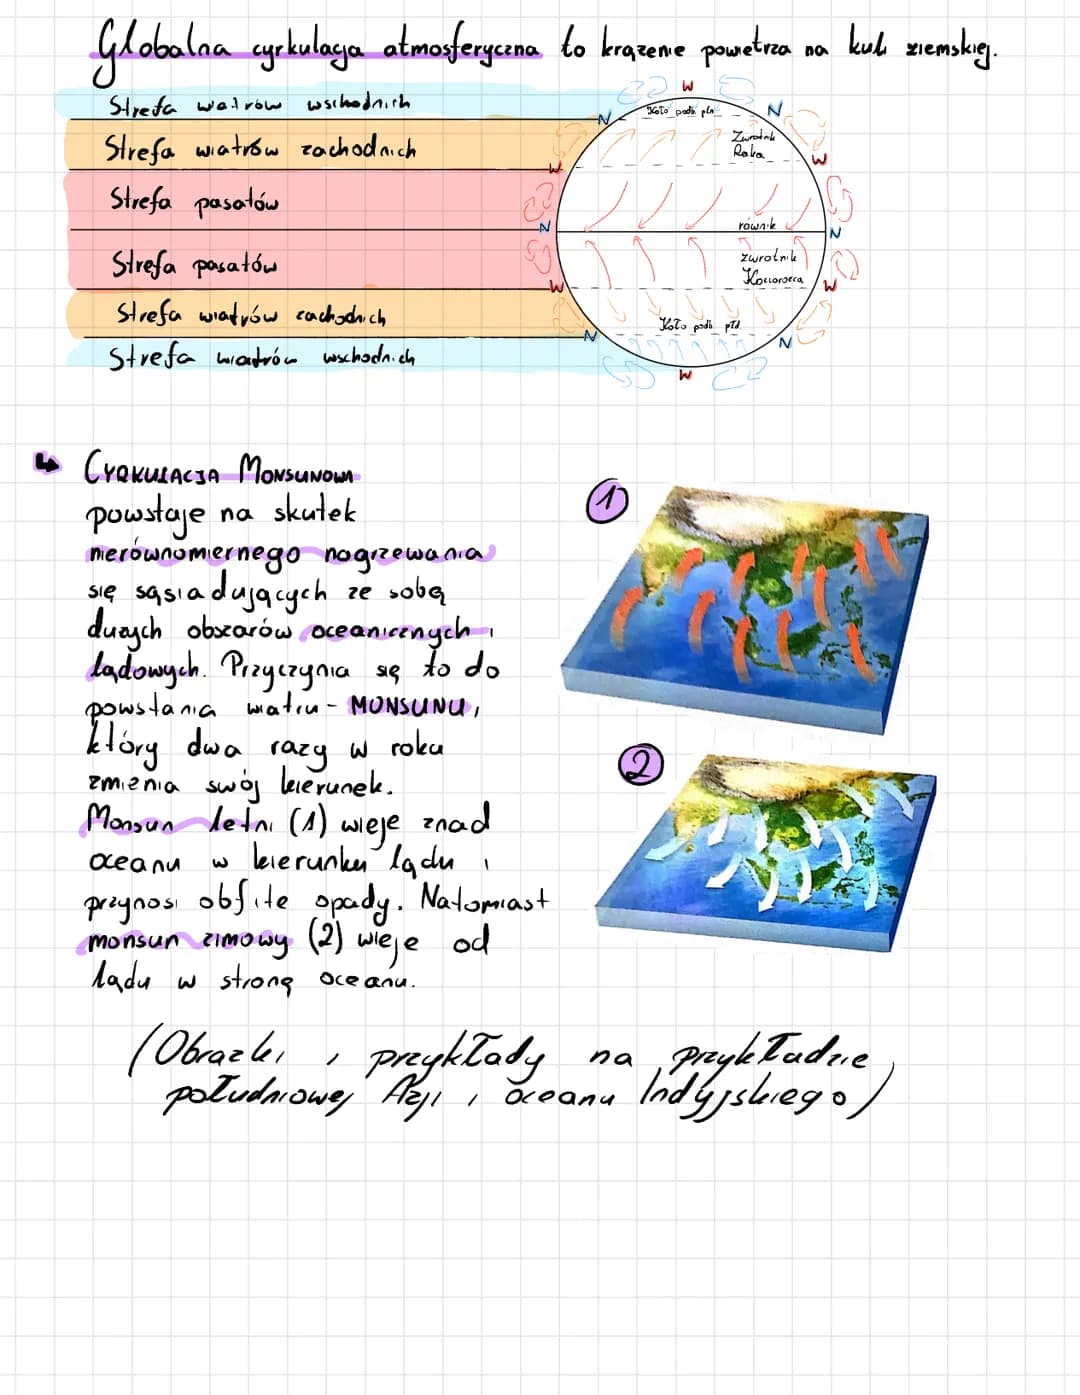 Globalna cyrkulacja atmosferyczna to krążenie powietrza na kuli ziemskiej.
Strefa wiatrów wschodnich
Strefa wiatrów zachodnich
Strefa pasatów
Strefa pasatów
Strefa wiatrów zachodnich
Strefa wiatrów wschodnich
W
Koło podb. płn.
N
N
Zwrotnik
Raka
W
W
równik
N
N
zwrotnik
Koziorożca
W
W
Koło podb. płd.
N
N
W
↳ CYRKULACJA MONSUNOWA
powstaje na skutek
nierównomiernego nagrzewania
się sąsiadujących ze sobą
dużych obszarów oceanicznych i
lądowych. Przyczynia się to do
powstania wiatru - MONSUNU,
który dwa razy w roku
zmienia swój kierunek.
Monsun letni (1) wieje znad
oceanu w kierunku lądu i
przynosi obfite opady. Natomiast
monsun zimowy (2) wieje od
lądu w stronę oceanu.
1
2
(Obrazki i przykłady na przykładzie
południowej Azji i oceanu Indyjskiego)